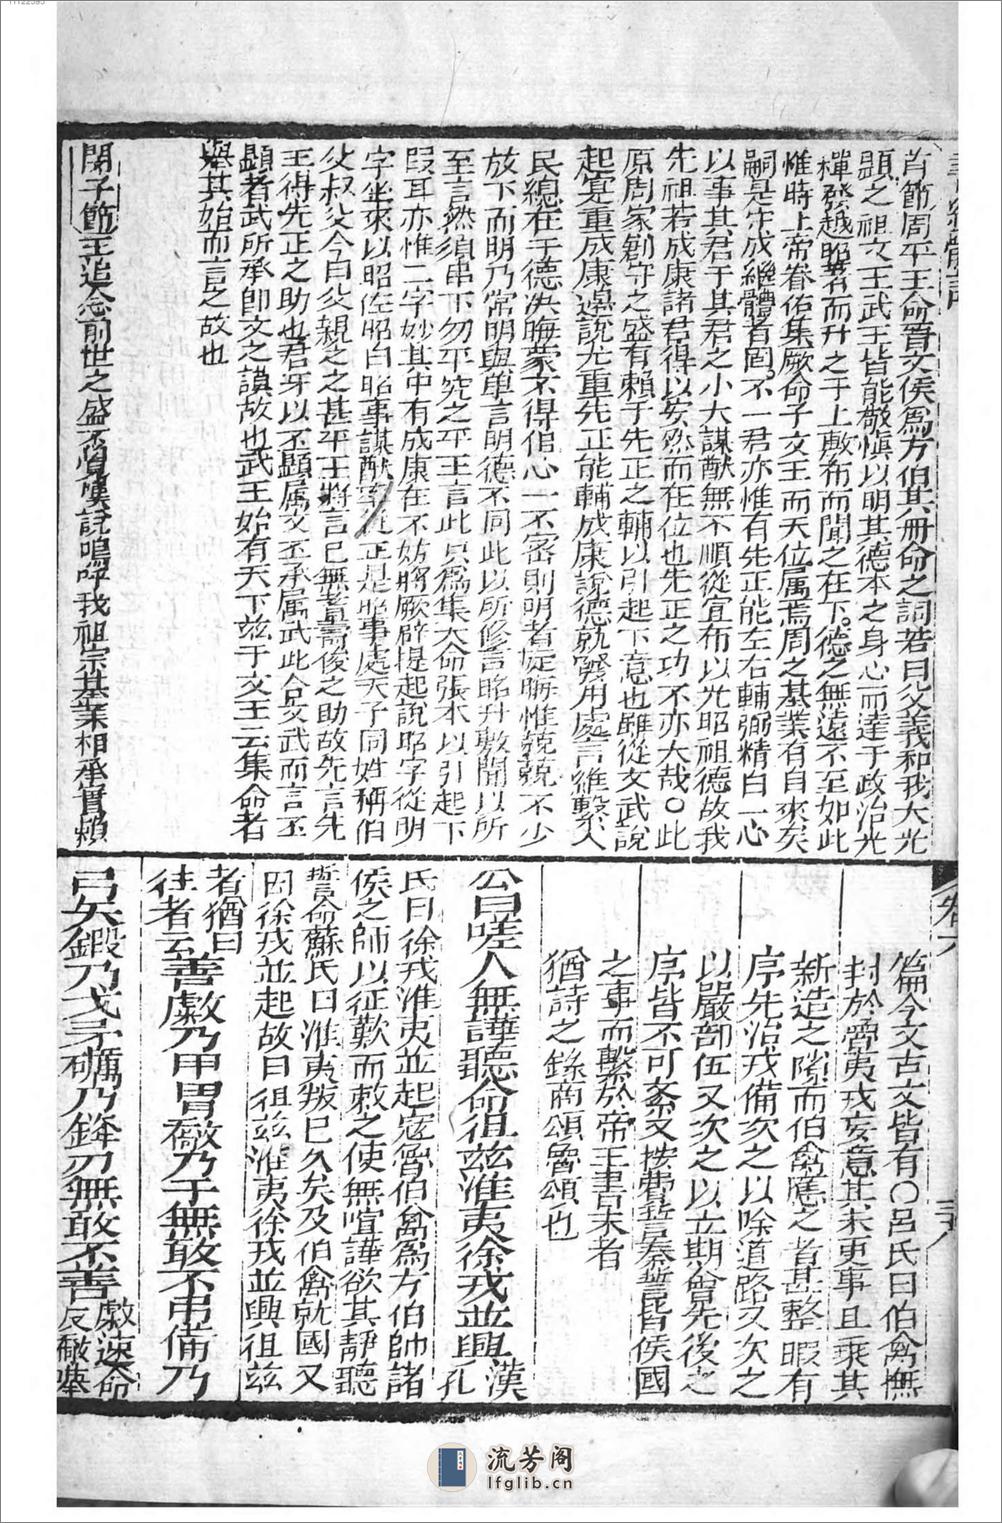 首節周平王命晉文侯爲方伯其冊命之詞若曰父義和我大光
顕之祖文王武王皆能敬愼以明其德本之身心而達于政治光
輝發越昭著而升之于上敷布而聞之在下德之無遠不至如此
惟時上帝眷佑集厥命于文王而天位属焉周之基業有自來矣
嗣是守成繼體者固不一君亦惟有先正能左右輔弼精白一心
以事其君于其君之小大謀猷無不順從宜布以光昭祖德故我
先祖若成康諸君得以安然而在位也先正之功不亦大哉○此
原周家創守之盛有賴于先正之輔以引起下意也雖從文武說
起寔重成康邊說尤重先正能輔成康說德就發用處言維繫人
民總在于德决晦蒙不得但心一不密則明者從晦惟兢兢不少
放下而明乃常明與單言明德不同此以所修言昭升敷聞以所
至言然須串下勿平究之平王言此只爲集大命張本以引起下
叚耳亦惟二字妙其中有成康在不妨將厥辟提起說昭字從明
字生來以昭佐昭曰昭事謀猷正是昭事處天子同姓稱伯
父叔父今曰父親之之甚平王將言已無耆壽俊之助故先言先
王得先正之助也君牙以丕顕属文丕承属武此合文武而言丕
顕者武所承即文之謨故也武王始有天下玆于文王云集命者
舉其始而言之故也
閔予節王追念前世之盛不覺嘆說嗚呼我祖宗基業相承實頼
卷六
篇今文古文皆有○呂氏曰伯禽撫
封於魯夷戎妄意其未更事且乘其
新造之隙而伯禽應之者甚整暇有
序先治戎備次之以除道路又次之
以嚴部伍又次之以立期會先後之
序皆不可紊又按費誓秦誓皆侯國
之事而繫於帝王書末者
猶詩之錄商頌魯頌也
公曰嗟人無譁聽命徂玆淮夷徐戎並興漢孔
氏曰徐戎淮夷並起寇魯伯禽爲方伯帥諸
侯之師以征歎而敕之使無喧譁欲其靜聽
誓命蘇氏曰淮夷叛已久矣及伯禽就國又
因徐戎並起故曰徂玆淮夷徐戎並興徂玆
者猶曰
徃者云善敹乃甲冑敿乃干無敢不弔備乃
弓矢鍛乃戈矛礪乃鋒刃無敢不善敹速命
反敿
流芳阁
lfglib.cn